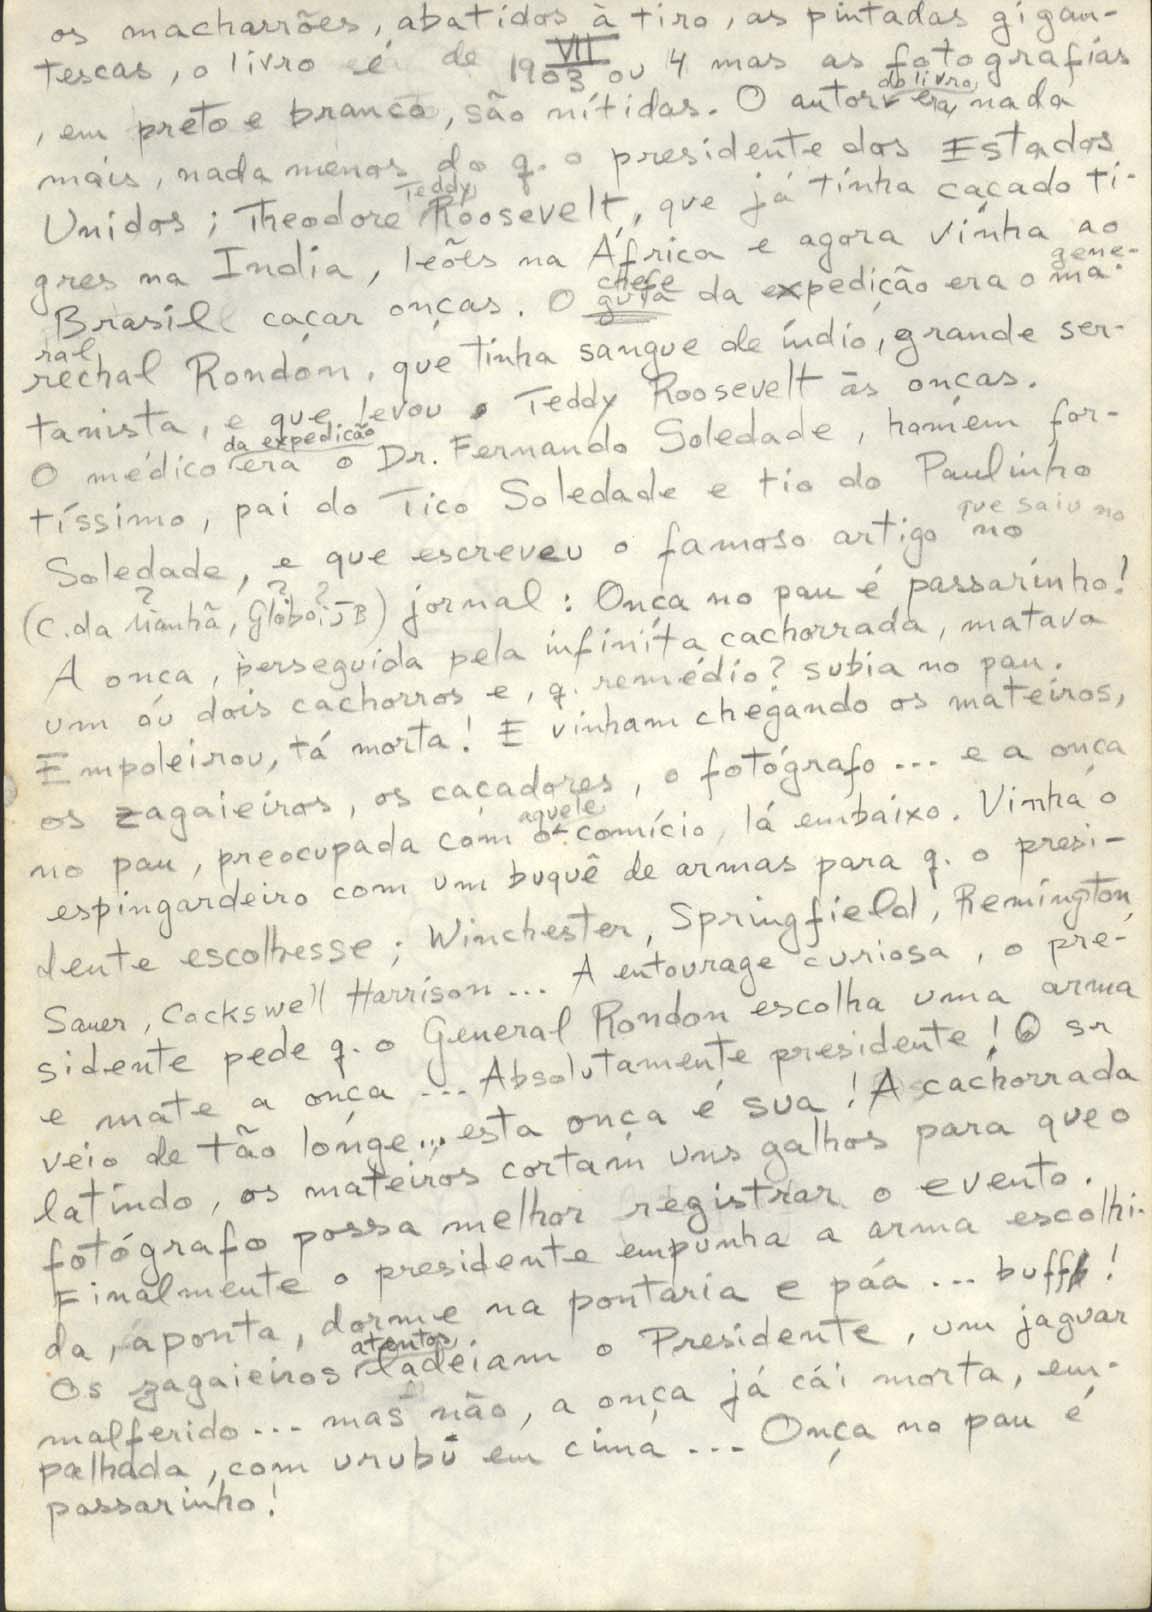 os macharrões, abatidos à tiro, as pintadas gigan-
tescas, o livro é de 1903 VII ou 4 mas as fotografias
, em preto e branco, são nítidas. O autor do livro era, nada
mais, nada menos do q. o presidente dos Estados
Unidos; Theodore Teddy Roosevelt, que já tinha caçado ti-
gres na India, leões na África e agora vinha ao
Brasil caçar onças. O guia chefe da expedição era o ma- gene-
rechal ral Rondon, que tinha sangue de índio, grande ser-
tanista, e que levou o Teddy Roosevelt às onças.
O médico da expedição era o Dr. Fernando Soledade, homem for-
tíssimo, pai do Tico Soledade e tio do Paulinho
Soledade, e que escreveu o famoso artigo no que saiu no
(C. da Manhã?, Globo?, JB?) jornal: Onça no pau é passarinho!
A onça, perseguida pela infinita cachorrada, matava
um ou dois cachorros e, q. remédio? subia no pau.
Empoleirou, tá morta! E vinham chegando os mateiros,
os zagaieiros, os caçadores, o fotógrafo... e a onça
no pau, preocupada com o aquele comício, lá embaixo. Vinha o
espingardeiro com um buquê de armas para q. o presi-
dente escolhesse; Winchester, Springfield, Remington,
Sauer, Cockswell Harrison... A entourage curiosa, o pre-
sidente pede q. o General Rondon escolha uma arma
e mate a onça... Absolutamente presidente! O sr
veio de tão longe... esta onça é sua! A cachorrada
latindo, os mateiros cortam uns galhos para que o
fotógrafo possa melhor registrar o evento.
Finalmente o presidente empunha a arma escolhi-
da, aponta, dorme na pontaria e páa... buff!
Os zagaieiros atentos, ladeiam o Presidente, um jaguar
malferido... mas não, a onça já cái morta, em-
palhada, com urubú em cima... Onça no pau é
passarinho!